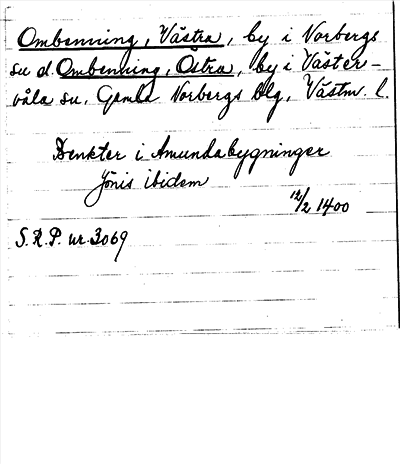 Ombenning, Västra, by i Norbergs
su d. Ombenning, Östra, by i Väster-
våla su, Gamla Norbergs Blg, Västm. l.
Benkter i Amundabygninger
Jönis ibidem
12/2 1400
S.R.P. nr. 3069